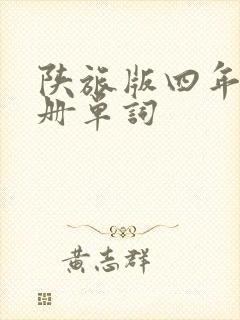 陕旅版四年
册单词
黄志群